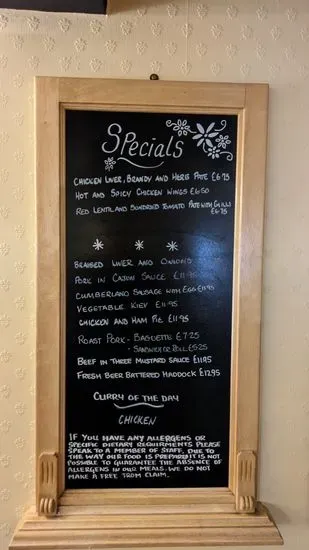 SPecials
CHICKEN LIVER, BRANDY AND HERB PATE £6.75
HOT AND SPICY CHICKEN WINGS £6.50
RED LENTIL AND SUNDRIED TOMATO PATE WITH
£6.75
BRAISED LIVER AND ONIONS
PORK IN CAJUN SAUCE £11.95
CUMBERLAND SAUSAGE WITH EGG £11.95
VEGETABLE KIEV £11.95
CHICKEN AND HAM PIE £11.95
ROAST PORK - BAGUETTE £7.25
- SANDWICH OR ROLL £5.25
BEEF IN THREE MUSTARD SAUCE £11.95
FRESH BEER BATTERED HADDOCK £12.95
CURRY OF THE DAY
CHICKEN
IF YOU HAVE ANY ALLERGENS OR
SPECIFIC DIETARY REQUIRMENTS PLEASE
SPEAK TO A MEMBER OF STAFF. DUE TO
THE WAY OUR FOOD IS PREPARED IT IS NOT
POSSIBLE TO GUARANTEE THE ABSENCE OF
ALLERGENS IN OUR MEALS. WE DO NOT
MAKE A FREE FROM CLAIM.